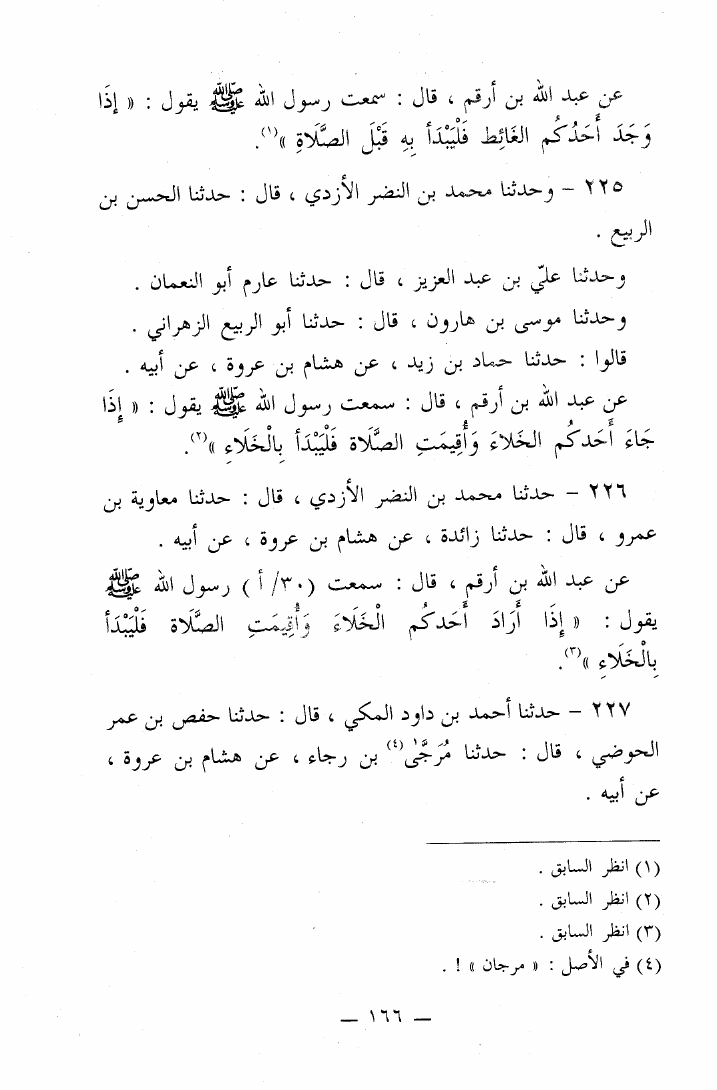 عن عبد الله بن أرقم ، قال : سمعت رسول الله ﷺ يقول : « إِذَا
وَجَدَ أَحَدُكُم الغَائِط فَلْيَبْدَأ بِهِ قَبْلَ الصَّلَاةِ »(١).
٢٢٥ – وحدثنا محمد بن النضر الأزدي ، قال : حدثنا الحسن بن
الربيع .
وحدثنا عليّ بن عبد العزيز ، قال : حدثنا عارم أبو النعمان .
وحدثنا موسى بن هارون ، قال : حدثنا أبو الربيع الزهراني .
قالوا : حدثنا حماد بن زيد ، عن هشام بن عروة ، عن أبيه .
عن عبد الله بن أرقم ، قال : سمعت رسول الله ﷺ يقول : « إِذَا
جَاءَ أَحَدكُم الخَلاءَ وَأُقِيمَتِ الصَّلَاة فَلْيَبْدَأ بِالْخَلَاءِ »(٢).
٢٢٦ – حدثنا محمد بن النضر الأزدي ، قال : حدثنا معاوية بن
عمرو ، قال : حدثنا زائدة ، عن هشام بن عروة ، عن أبيه .
عن عبد الله بن أرقم ، قال : سمعت (٣٠/ أ) رسول الله ﷺ
يقول : « إِذَا أَرَادَ أَحَدكُم الْخَلَاءَ وَأُقِيمَتِ الصَّلَاة فَلْيَبْدَأ
بِالْخَلَاءِ »(٣).
٢٢٧ – حدثنا أحمد بن داود المكي ، قال : حدثنا حفص بن عمر
الحوضي ، قال : حدثنا مُرَجَّىٰ(٤) بن رجاء ، عن هشام بن عروة ،
عن أبيه .
(١) انظر السابق .
(٢) انظر السابق .
(٣) انظر السابق .
(٤) في الأصل : « مرجان » ! .
— ١٦٦ —